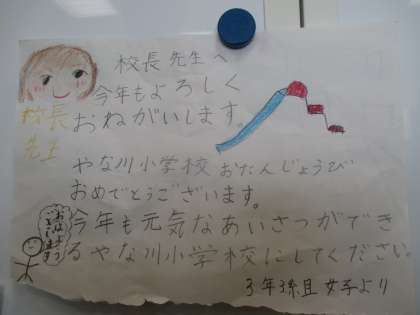 校長先生へ
今年もよろしく
おねがいします。
校長
先生
やな川小学校おたんじょうび
おめでとうございます。
おはよう
ございます
今年も元気なあいさつができ
るやな川小学校にしてください。
3年3組女子より